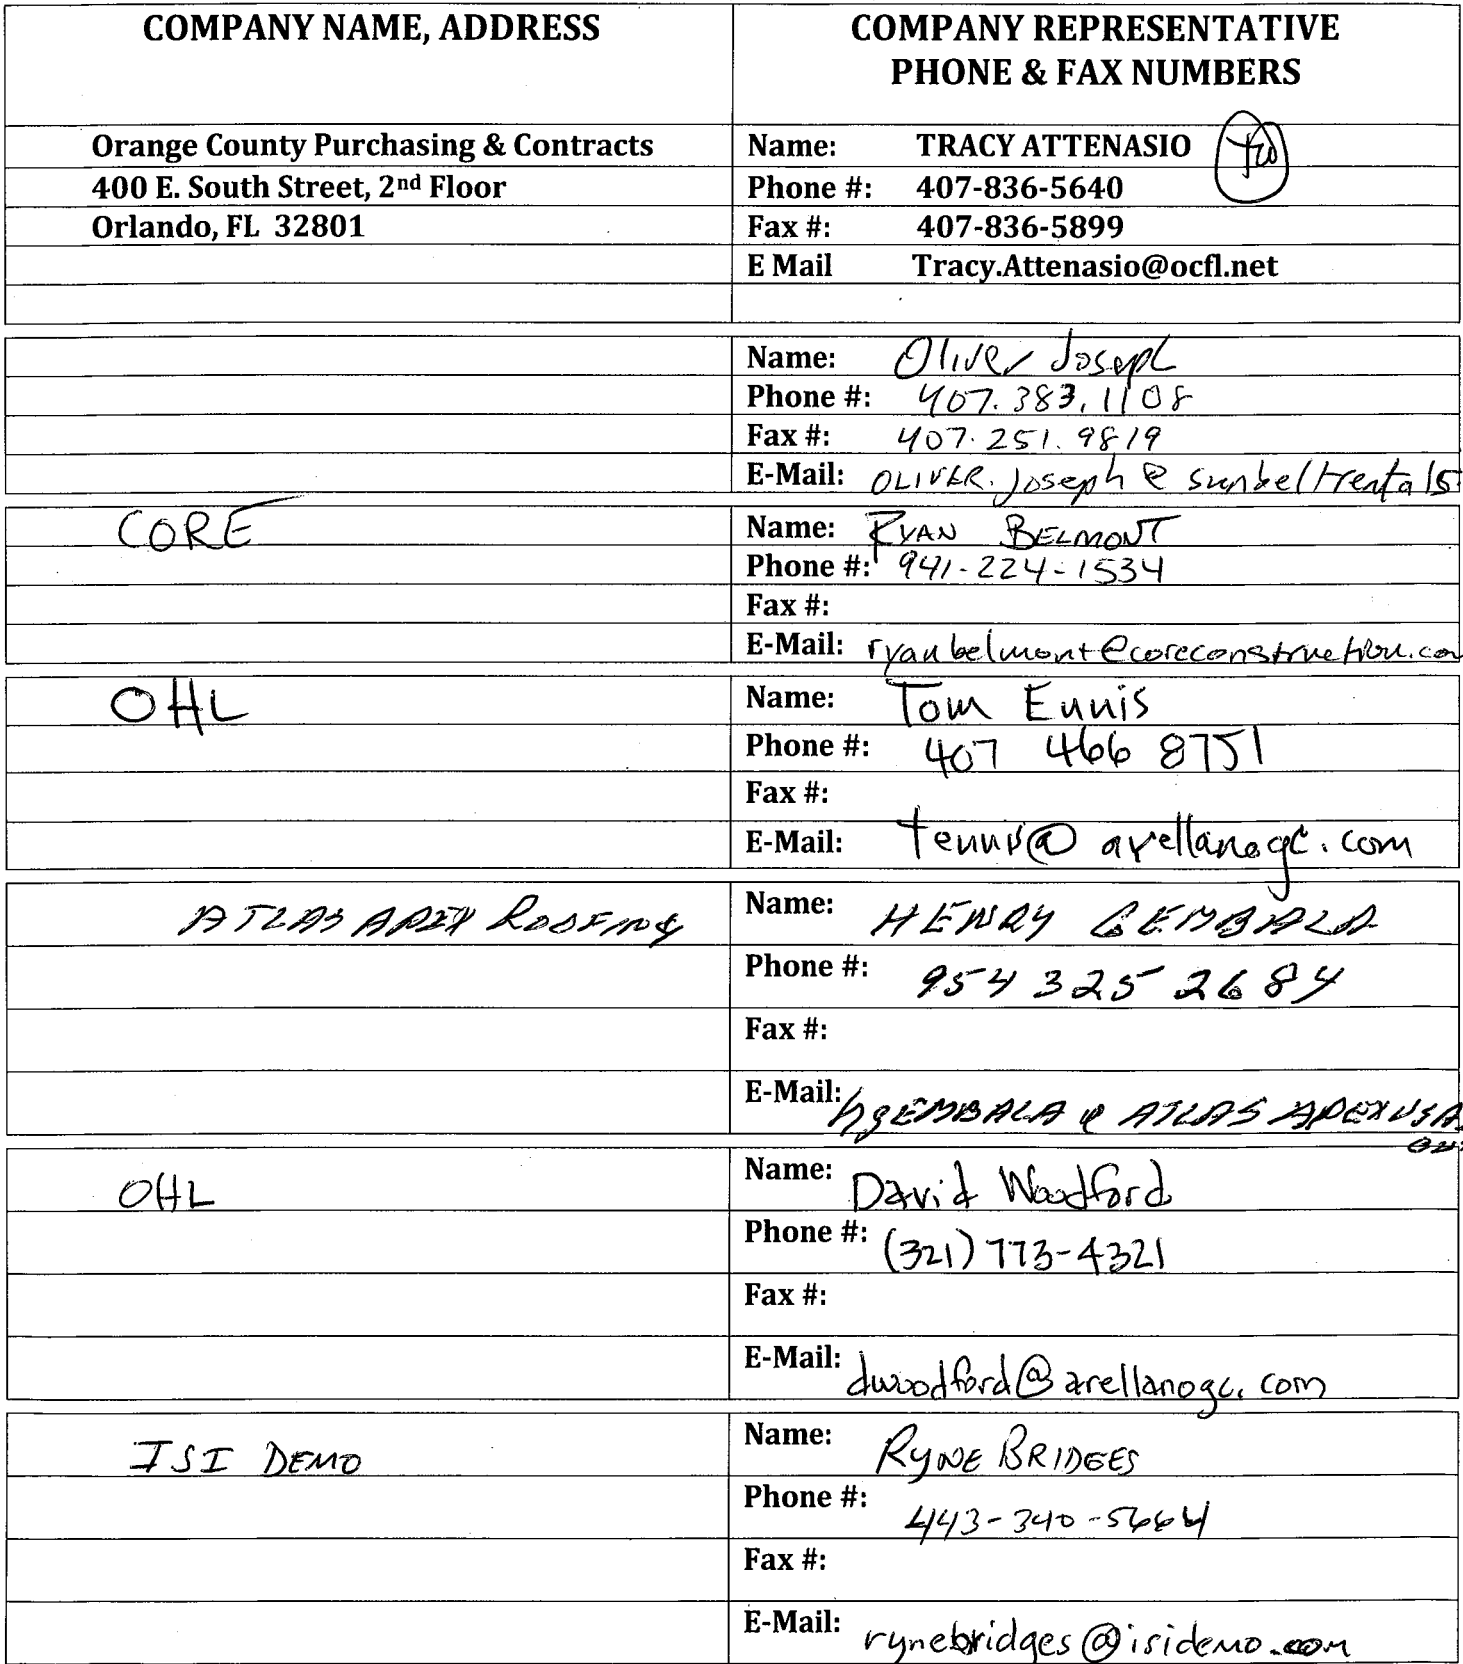 COMPANY NAME, ADDRESS
COMPANY REPRESENTATIVE
PHONE & FAX NUMBERS
Orange County Purchasing & Contracts
Name: TRACY ATTENASIO
400 E. South Street, 2nd Floor
Phone #: 407-836-5640
Orlando, FL 32801
Fax #: 407-836-5899
E Mail Tracy.Attenasio@ocfl.net
Name: Oliver Joseph
Phone #: 407.383.1108
Fax #: 407.251.9819
E-Mail: OLIVER.Joseph@sunbeltrentals.
CORE
Name: RYAN BELMONT
Phone #: 941-224-1534
Fax #:
E-Mail: ryanbelmont@coreconstruction.com
OHL
Name: Tom Ennis
Phone #: 407 466 8751
Fax #:
E-Mail: tennis@arellanogc.com
ATLAS APEX ROOFING
Name: HENRY GEMBALA
Phone #: 954 325 2684
Fax #:
E-Mail: hgEMBALA@ATLASAPEXUSA
OHL
Name: David Woodford
Phone #: (321) 773-4321
Fax #:
E-Mail: dwoodford@arellanogc.com
ISI DEMO
Name: RYNE BRIDGES
Phone #: 443-340-5664
Fax #:
E-Mail: rynebridges@isidemo.com